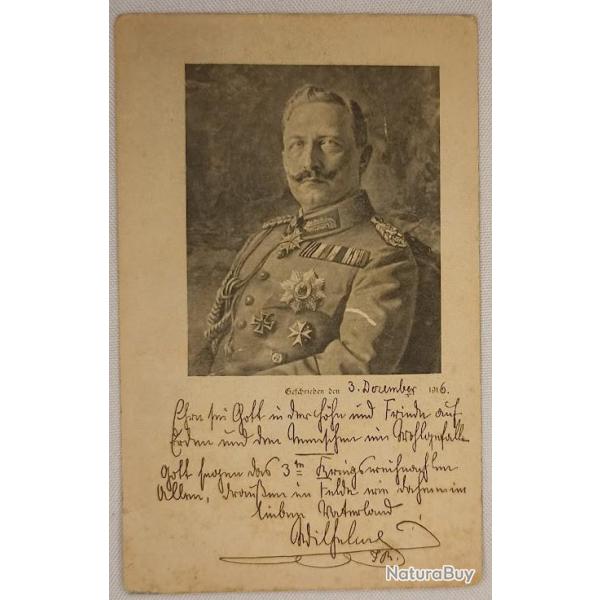 Geschrieben den 3. Dezember 1916.
Ehre sei Gott in der Höhe und Friede auf
Erden und den Menschen ein Wohlgefallen
Gott segne das 3te Kriegsweihnachten
Allen, draußen im Felde wie daheim im
lieben Vaterland
Wilhelm
I.R.
NaturaBuy